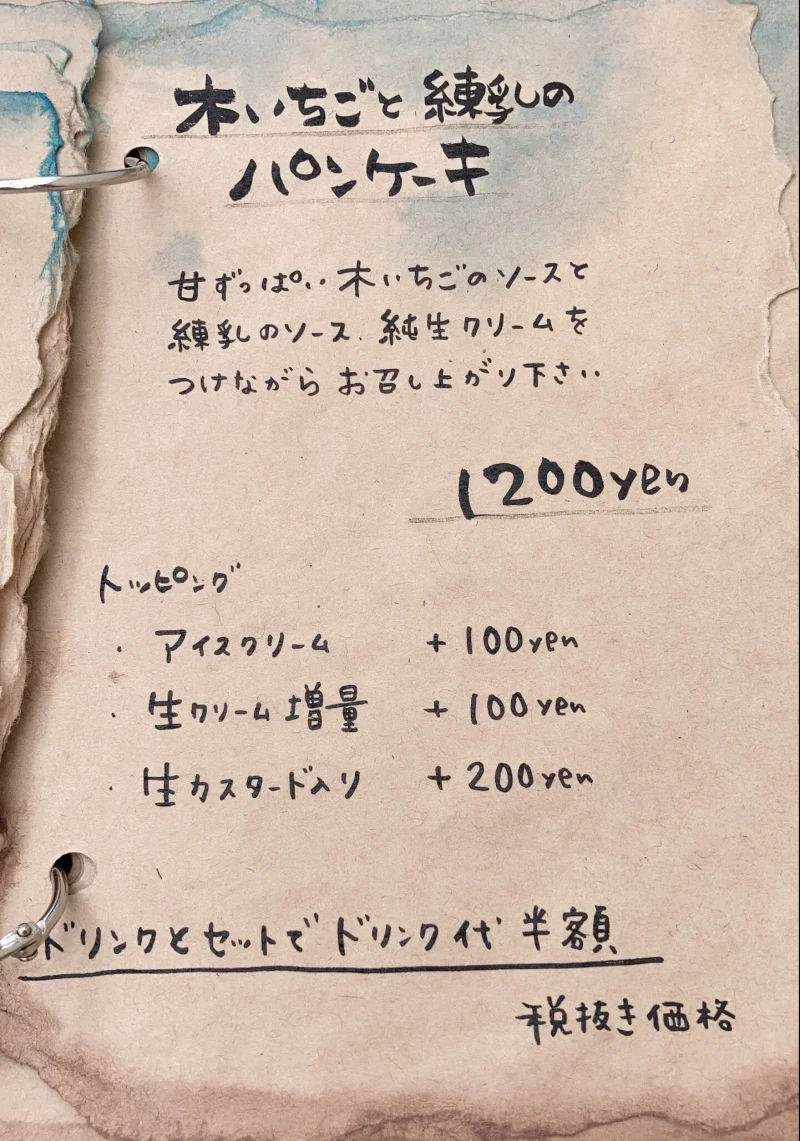 木いちごと練乳の
パンケーキ
甘ずっぱい木いちごのソースと
練乳のソース、純生クリームを
つけながらお召し上がり下さい
1200yen
トッピング
・アイスクリーム +100yen
・生クリーム増量 +100yen
・生カスタード入り +200yen
ドリンクとセットでドリンク代半額
税抜き価格